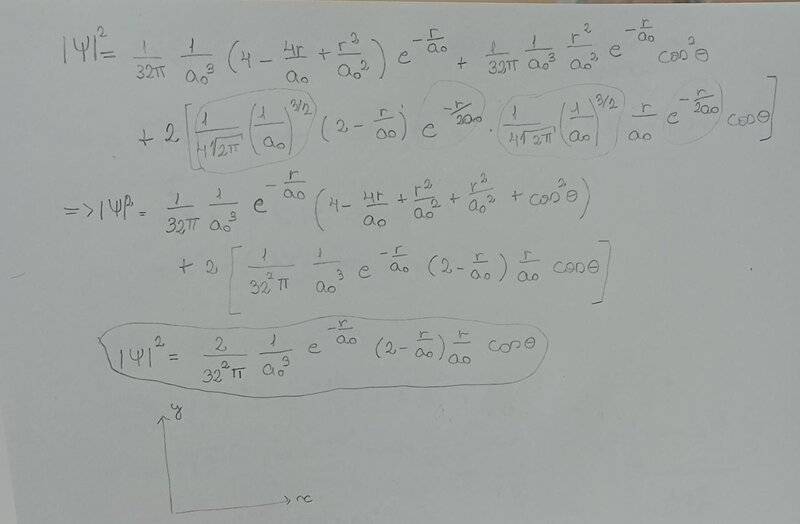 |Ψ|² = 1/32π 1/a₀³ (4 - 4r/a₀ + r²/a₀²) e^(-r/a₀) + 1/32π 1/a₀³ r²/a₀² e^(-r/a₀) cos²θ
+ 2 [1/4√2π (1/a₀)^(3/2) (2 - r/a₀) e^(-r/2a₀) · 1/4√2π (1/a₀)^(3/2) r/a₀ e^(-r/2a₀) cosθ]
=> |Ψ|² = 1/32π 1/a₀³ e^(-r/a₀) (4 - 4r/a₀ + r²/a₀² + r²/a₀² + cos²θ)
+ 2 [1/32²π 1/a₀³ e^(-r/a₀) (2 - r/a₀) r/a₀ cosθ]
|Ψ|² = 2/32²π 1/a₀³ e^(-r/a₀) (2 - r/a₀) r/a₀ cosθ
y
x